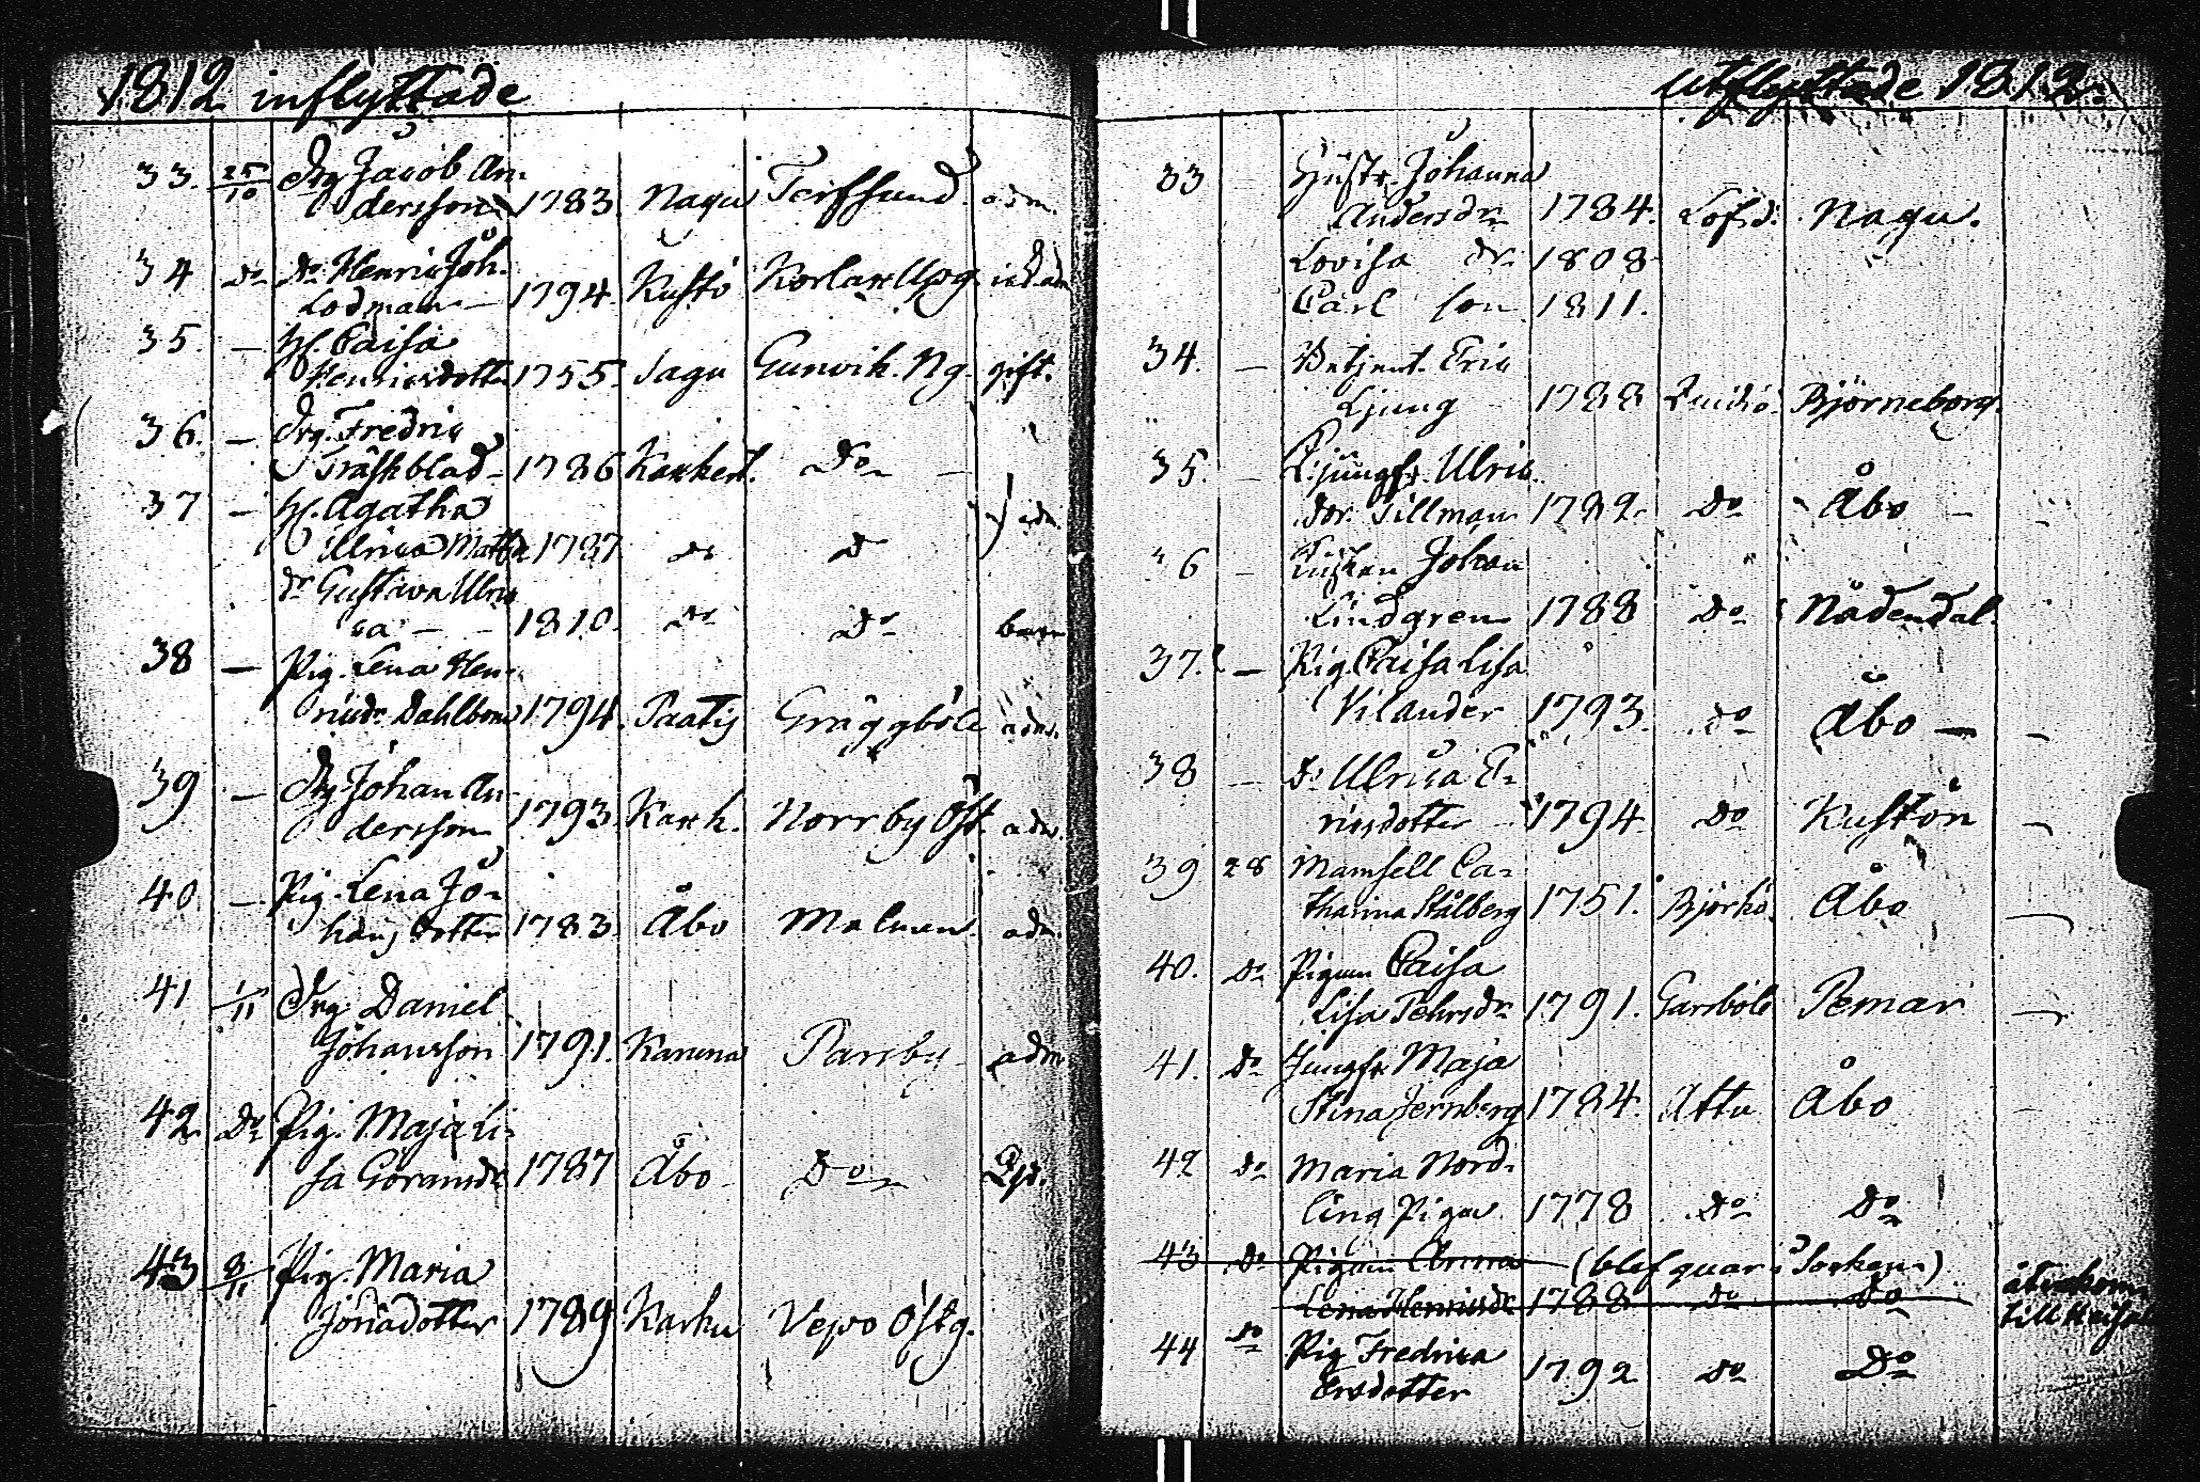 1812 inflyttade
33. 25/10 Drg Jacob An-
dersson 1783. Nagu Terfsund. adm.
34 Do Do Henric Joh.
Lodman - 1794. Kustö
35. - H. Caisa
Henricsdotter 1755. Sagu Gunvik. Ng. gift.
36. - Drg. Fredric
Träskblad - 1786 Do -
37 - H. Agatha
Ulrica 1787 Do D adm.
dr Gustava Ulric
ca - - 1810. Do Do barn
38 - Pig. Lena Hen-
ricsdr Dahlbom 1794. Paatis Gräggböle adm.
39 - Drg Johan An-
dersson 1793. Kark. Norrby Öst. adm.
40. - Pig. Lena Jo-
hansdotter 1783. Åbo Malmen. adm.
41 1/11 Drg. Daniel
Johansson 1791. Karuna Parsby adm
42. Do Pig. Maja Li-
sa Göransdr 1787 Åbo - Do
43 8/11 Pig. Maria
1789 Karku Vepo Östg.
utflyttade 1812.
33 - Hustr. Johanna
Andersdr 1784. Lofsd. Nagu.
Lovisa dr 1808
Carl son 1811.
34. - Betjent. Eric
Ljung 1788 Björneborg.
35. - Jungfr. Ulric.
Dor. Tillman 1789. Do Åbo -
36 - Johan
Lindgren 1788 Do Nådendal.
37. - Pig. Caisa Lisa
Vilander 1793. Do Åbo -
38 - Do Ulrica E-
ricsdotter 1794 Do Kustön
39 28 Mamsell Ca-
tharina Stålberg 1751. Björkö. Åbo
40. Do Pigan Caisa
Lisa Pehrsdr 1791. Garsböle Pemar
41. Do Jungfr Maja
Stina Jernberg 1784. Attu Åbo
42 Do Maria Nord-
ling Pigan 1778 Do Do
43 Do Pigan Anna (blef quar i Socken)
Lena Henricsdr 1788 Do Do återkom
till
44 Do Pig Fredrica
Ersdotter 1792 Do Do